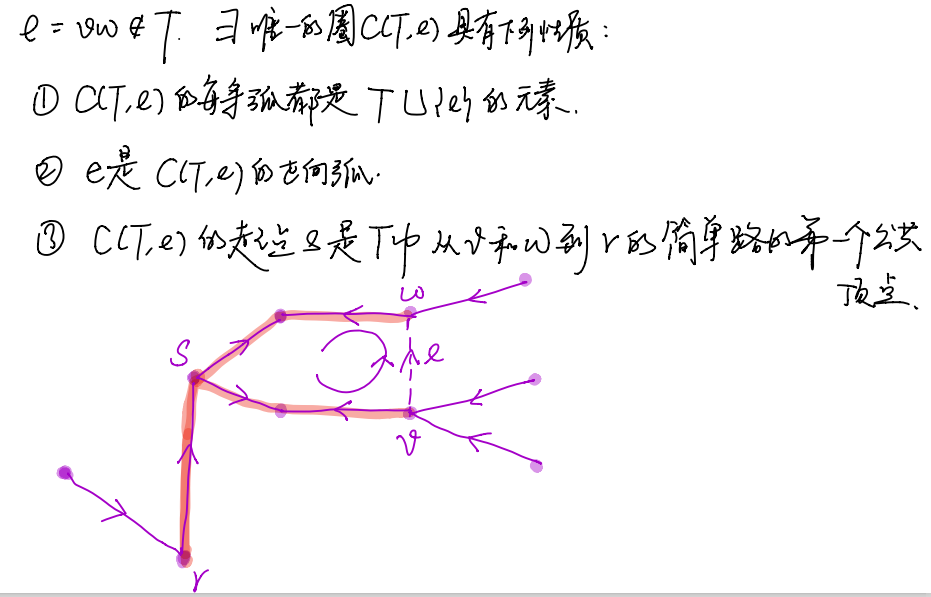 e = vw ∉ T. ∃唯一的圈C(T,e)具有下列性质:
① C(T,e)的每条弧都是 T∪{e}的元素.
② e是 C(T,e)的正向弧.
③ C(T,e)的起点 s 是 T中 从v和w到 r 的简单路的第一个公共
顶点.
w
s
e
v
r